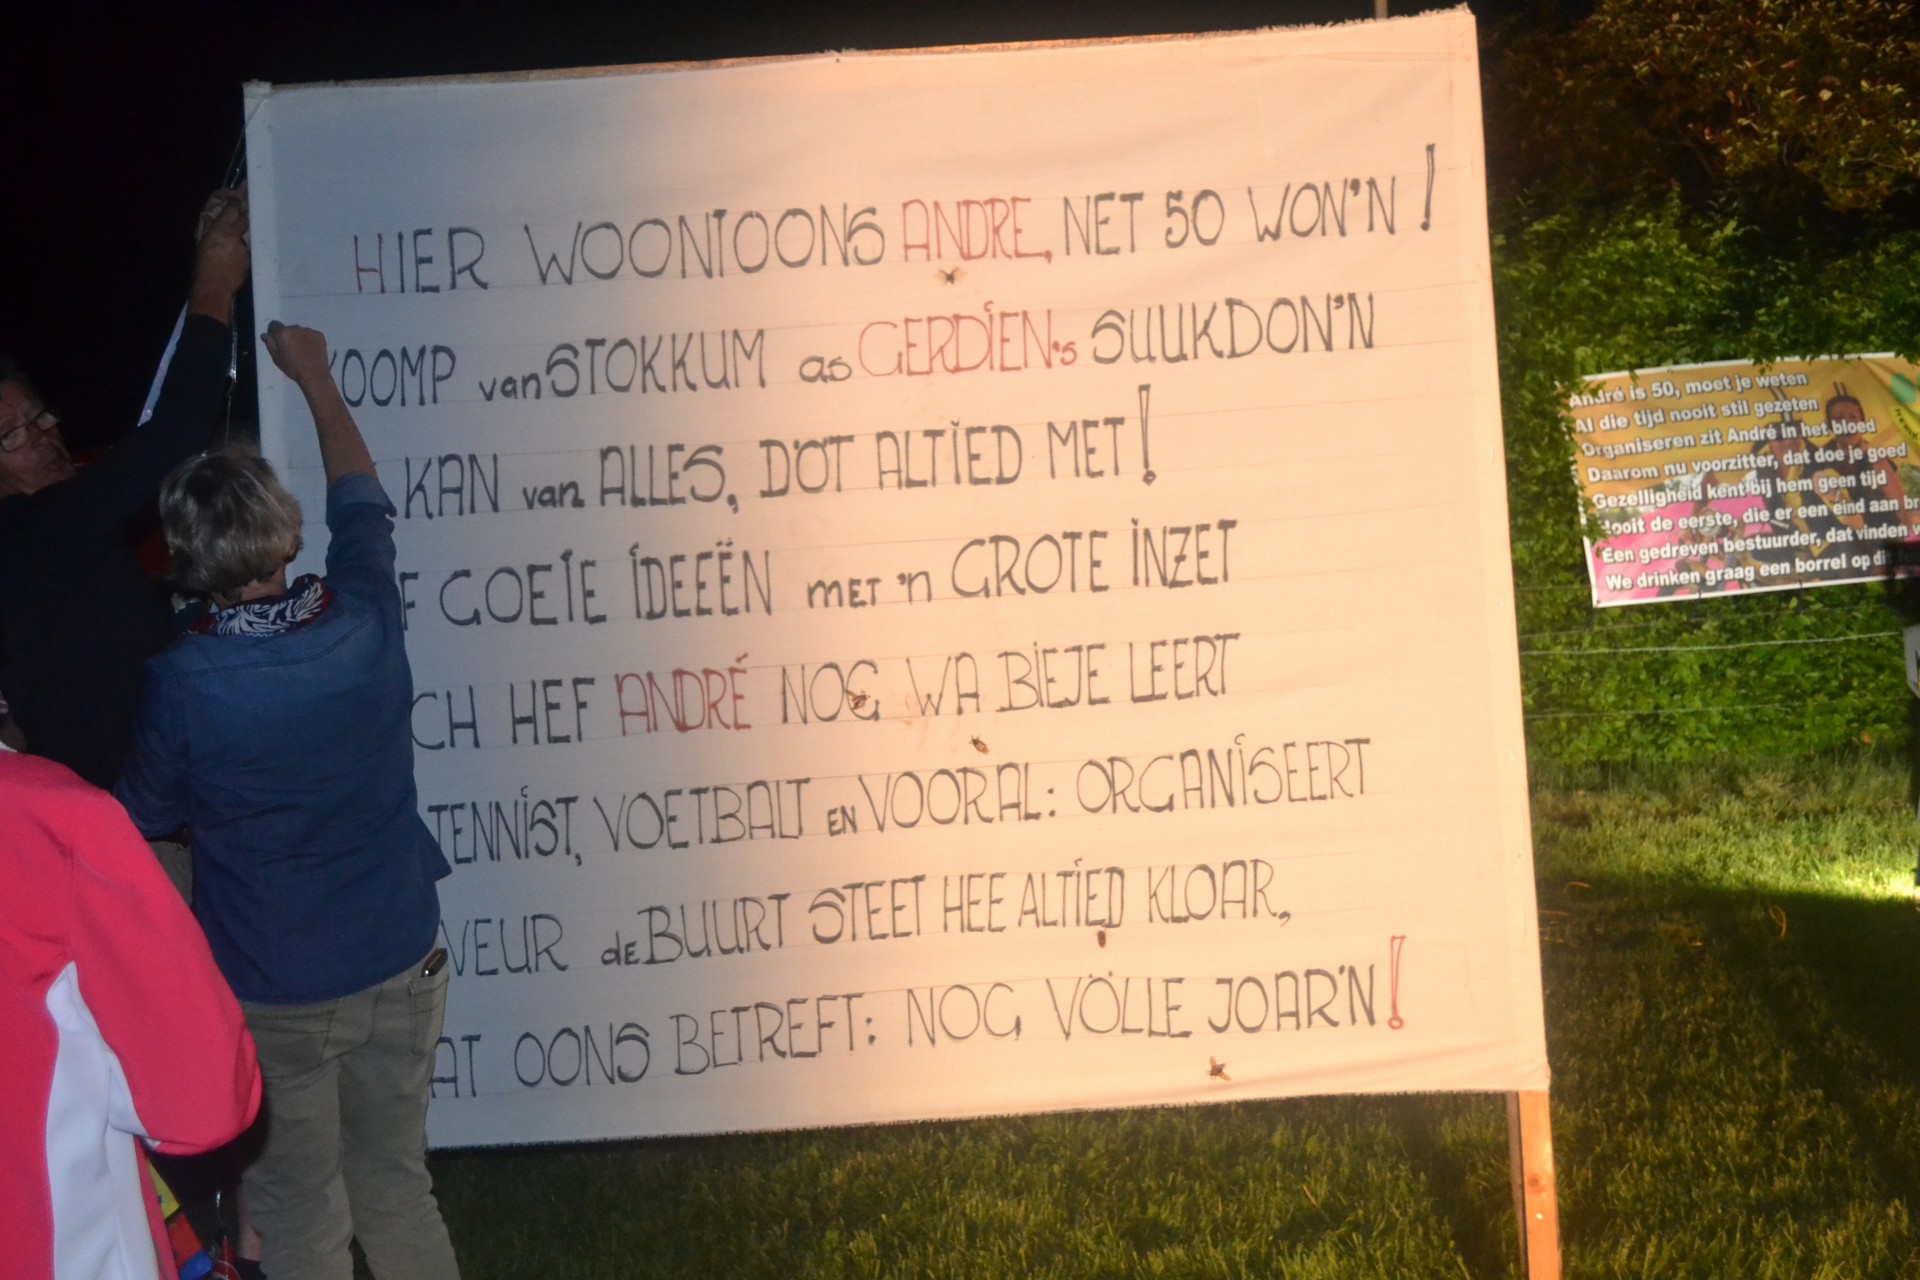 HIER WOONT OONS ANDRE, NET 50 WON'N!
KOOMP van STOKKUM as GERDIEN's SUUKDON'N
KAN van ALLES, DÖT ALTIED MET!
GOEIE IDEEËN MET 'n GROTE INZET
HEF ANDRÉ NOG WA BIEJE LEERT
TENNIST, VOETBALT EN VOORAL: ORGANISEERT
VEUR de BUURT STEET HEE ALTIED KLOAR,
OONS BETREFT: NOG VÖLLE JOAR'N!
André is 50, moet je weten
Al die tijd nooit stil gezeten
Organiseren zit André in het bloed
Daarom nu voorzitter, dat doe je goed
Gezelligheid kent bij hem geen tijd
Nooit de eerste, die er een eind aan
Een gedreven bestuurder, dat vinden
We drinken graag een borrel op